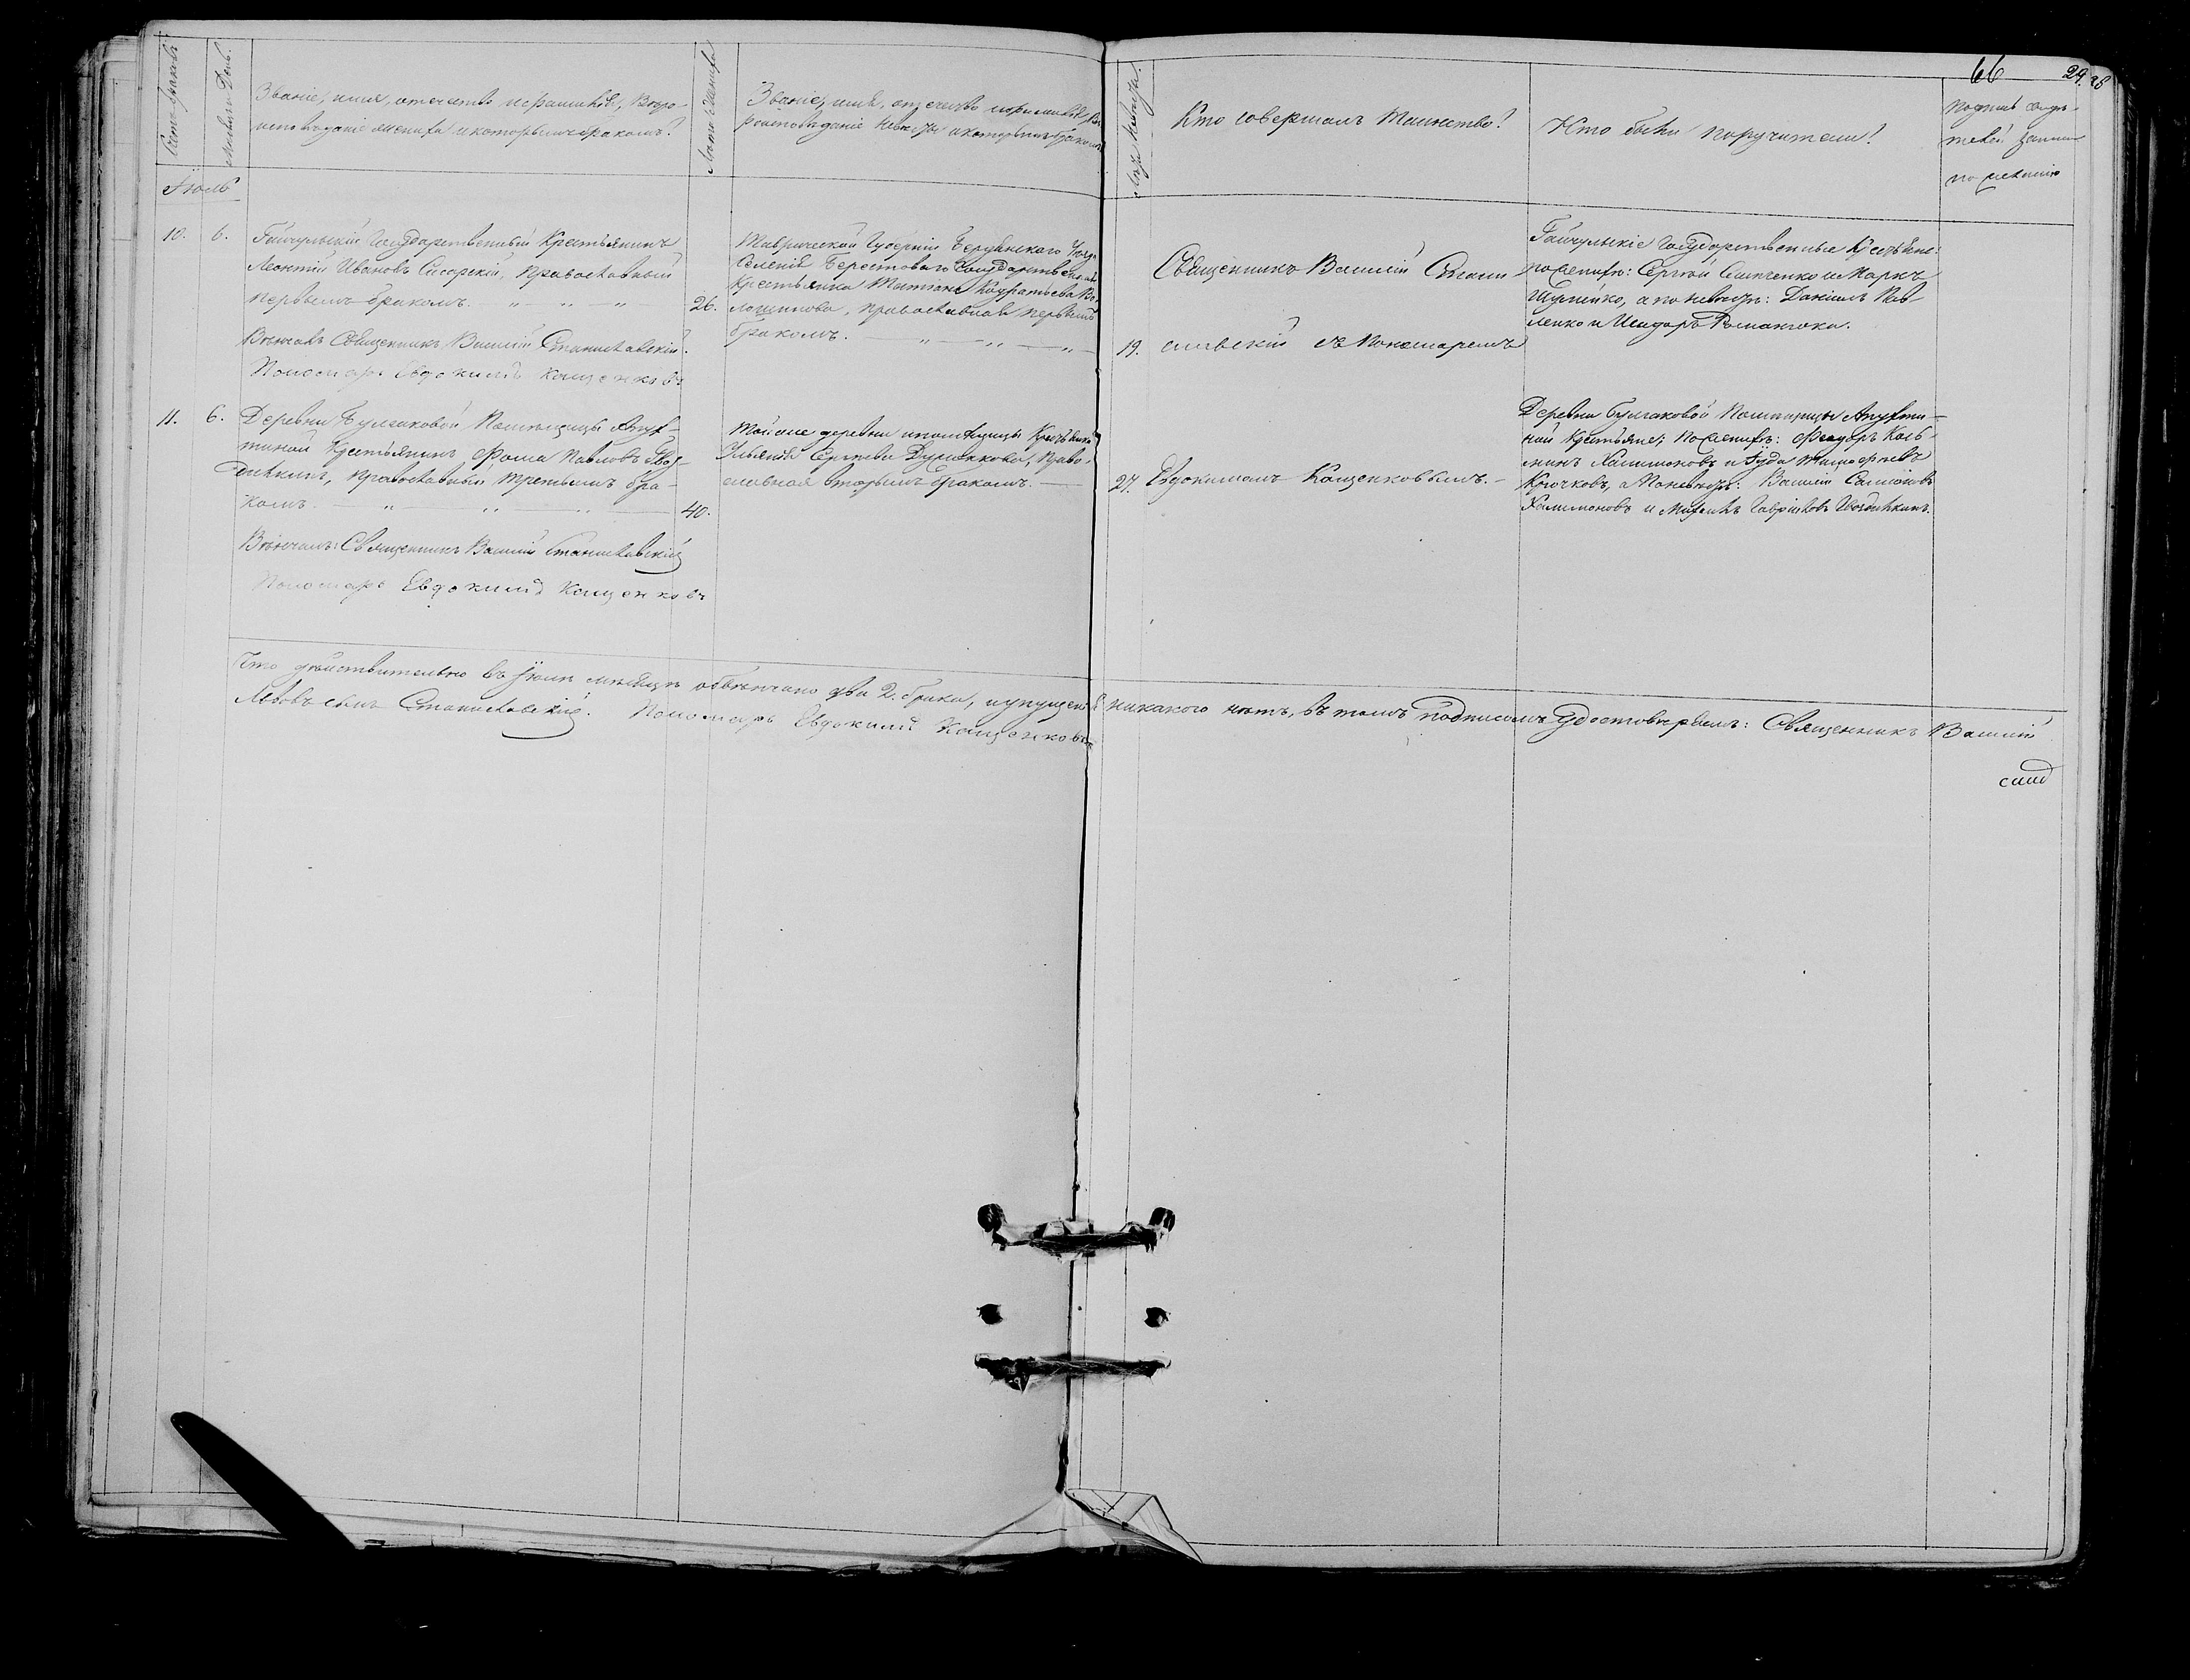 66 29. 28
Счетъ браковъ
Месяцъ и День.
Званіе, имя, отечество и фамилія, Вѣро-
исповѣданіе жениха и которымъ бракомъ?
Лѣта Жениха
Званіе, имя, отечество и фамилія, Вѣ
роисповѣданіе невѣсты и которымъ бракомъ
Лѣта Невѣсты.
Кто совершалъ Таинство?
Кто были поручители?
подпись свидѣ-
телей записи
по желанію
Іюль
10. 6.
Гайчульскій Государственный Крестьянинъ
Леонтій Ивановъ Сисарскій, православный
первымъ бракомъ.
26.
Вѣнчалъ Священникъ Василій Станиславскій.
Пономарь Евдокимъ Кащенковъ
Таврической Губерніи Бердянскаго Уѣзда
Селенія Берестоваго Государственная
Крестьянка Татіана Кодратьева Во-
лошинова, православная первымъ
бракомъ.
19.
Священникъ Василій Стани
славскій съ Пономаремъ
Гайчульскіе Государственные Крестьяне:
по женихѣ: Сергѣй Сынченко и Маркъ
Шулейко, а по невѣстѣ: Даніилъ Пав-
ленко и Исидоръ Романюка.
11. 6.
Деревни Булгаковой Помѣщицы Апух-
тиной Крестьянинъ Фома Павловъ Гвоз-
дилкинъ, православный третьимъ бра-
комъ.
40.
Вѣнчалъ: Священникъ Василій Станиславскій
Пономарь Евдокимъ Кащенковъ
Той же деревни и помѣщицы Крестьянка
Ульянія Сергѣева Думанкова, Право-
славная вторымъ бракомъ.
27.
Евдокимомъ Кащенковымъ.
Деревни Булгаковой Помѣщицы Апухти-
ной Крестьяне; По женихѣ: Феодоръ Козь-
минъ Халимоновъ и Іуда Тимофѣевъ
Крючковъ, а По невѣстѣ: Василій Самсоновъ
Халимоновъ и Михаилъ Гавриловъ Гвоздилкинъ.
Что дѣйствительно въ Іюлѣ месяцѣ обвѣнчано два 2. брака, и упущенія никакого нѣтъ, въ томъ подписомъ удостовѣряемъ: Священникъ Василій
Львовъ сынъ Станиславскій. Пономарь Евдокимъ Кащенковъ